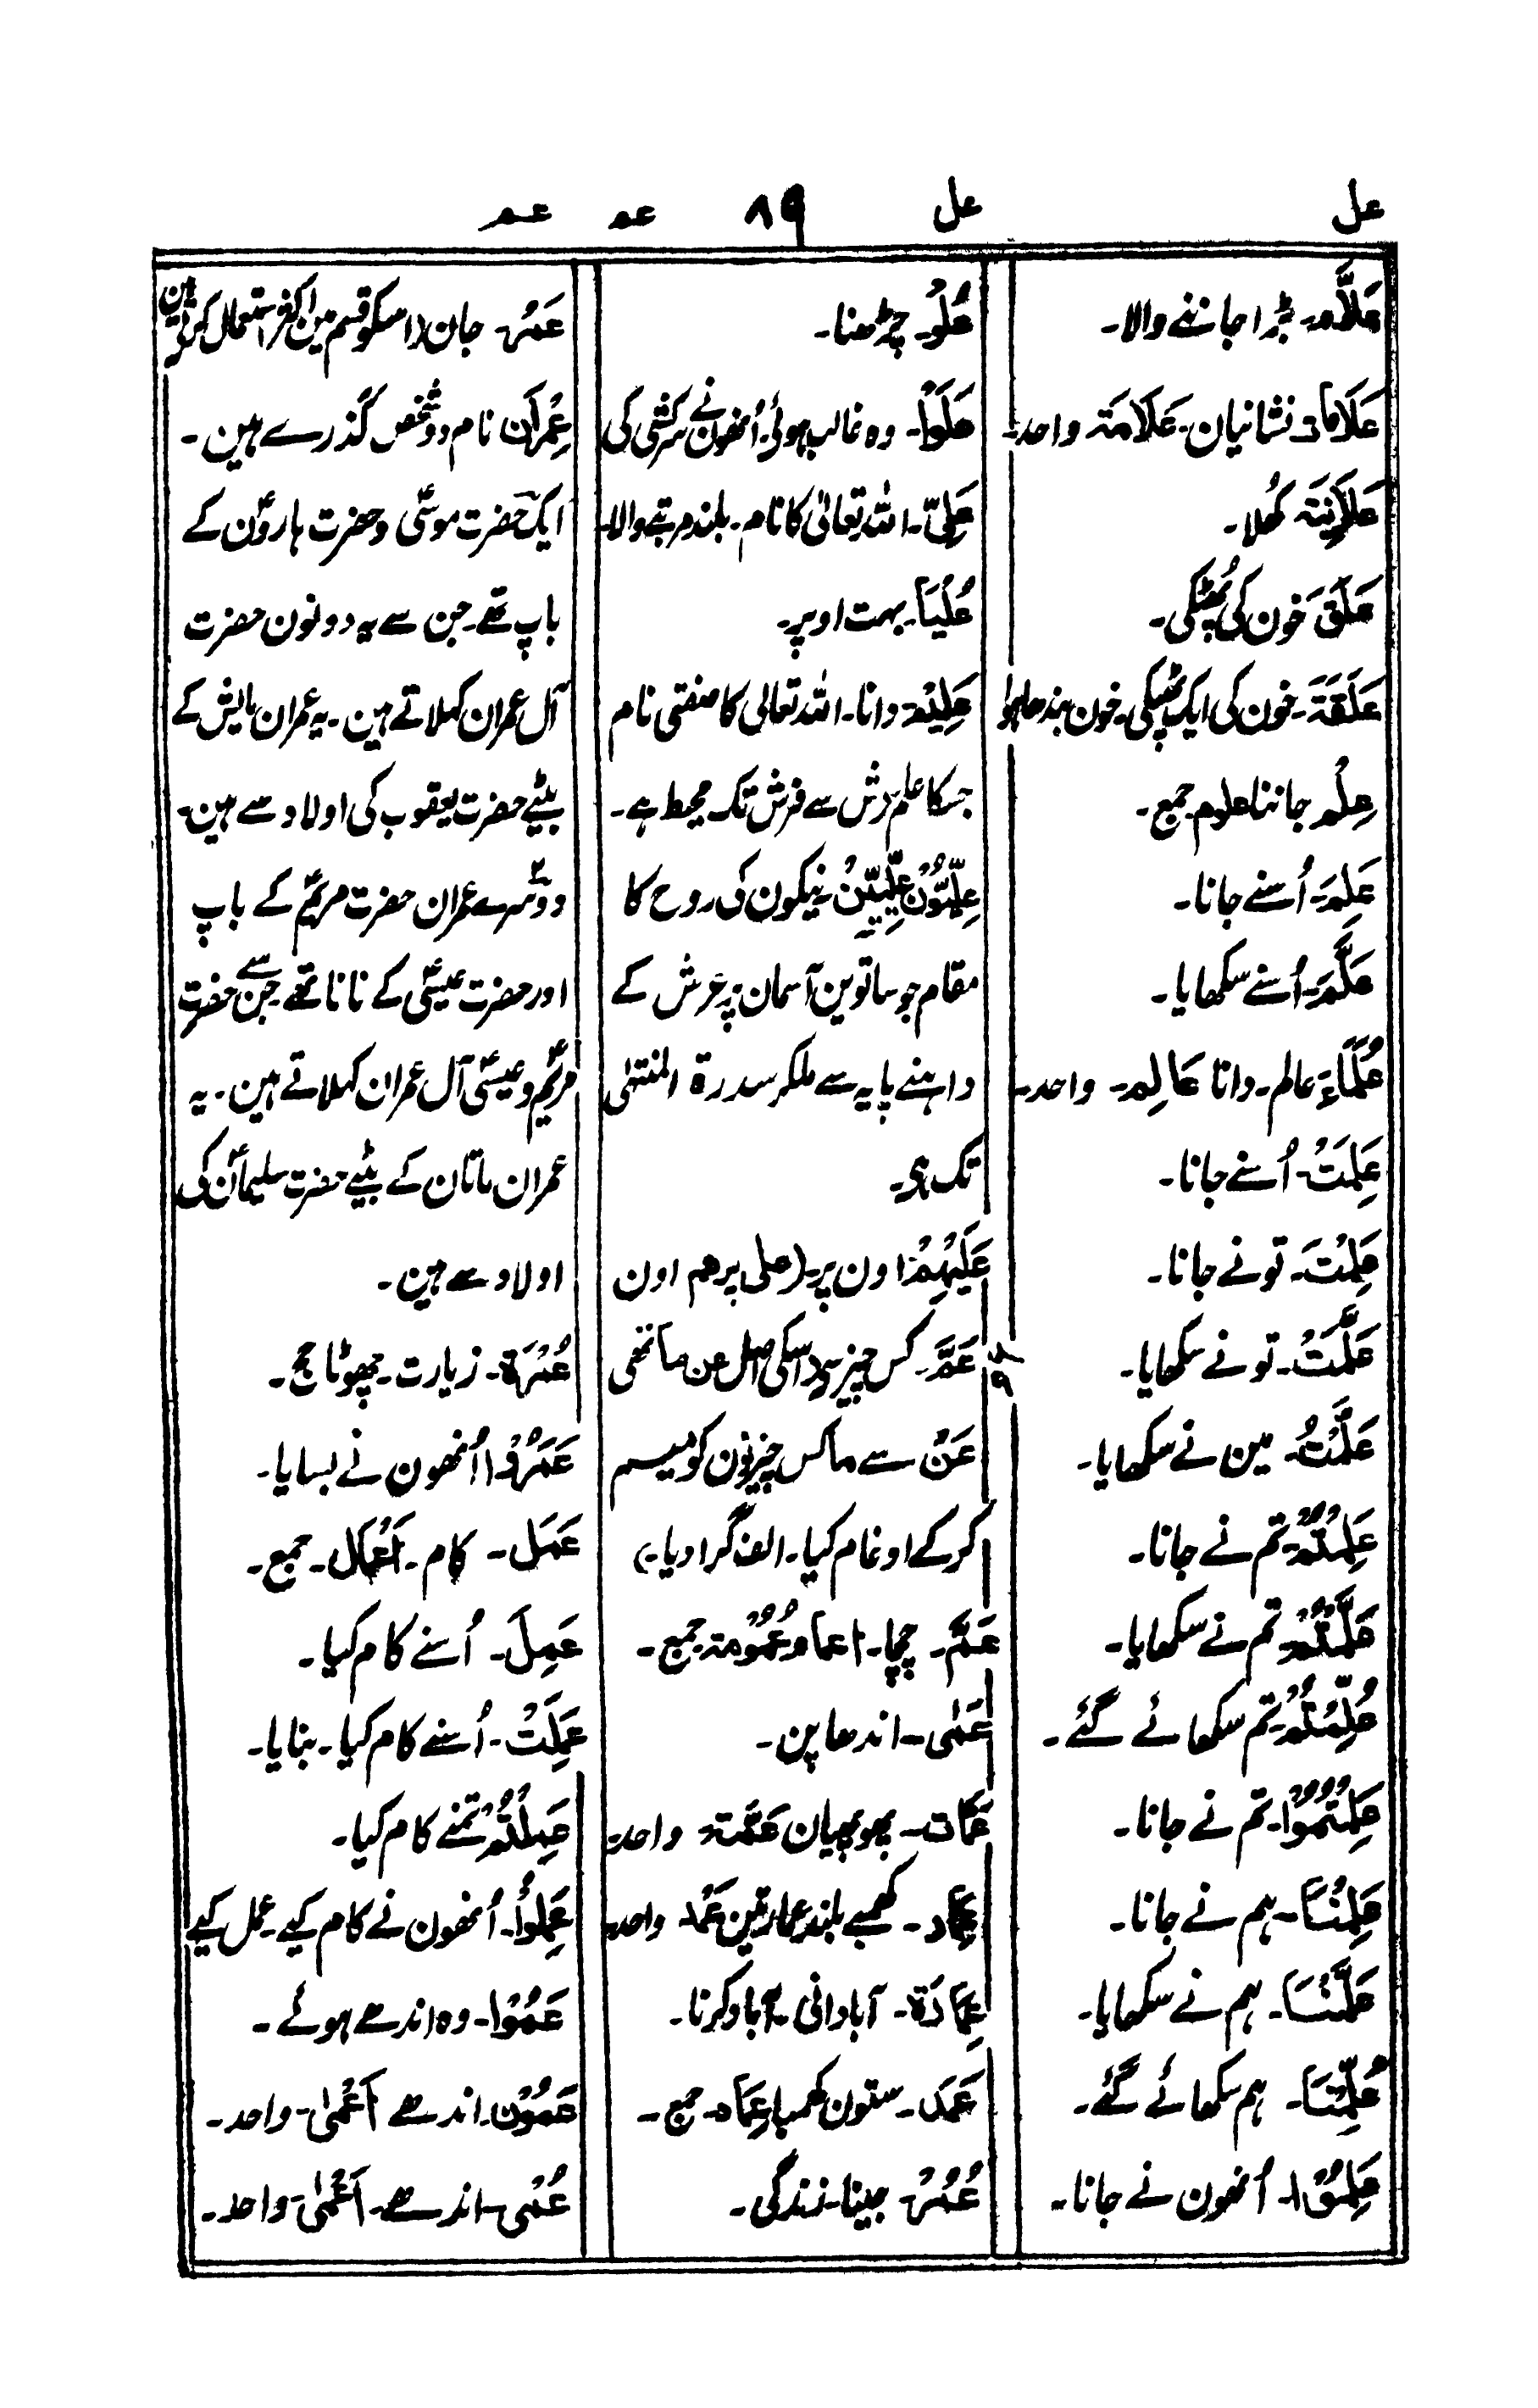 عل
عل
۸۹
عم
عم
عَلَّام۔ بڑا جاننے والا۔
عَلَامَات نشانیان۔ عَلَامَة واحد۔
عَلَانِيَة کُھلا۔
عَلَقَ خون کی پُھٹکی۔
عَلَقَة۔ خون کی ایک پھٹکی۔ خون بندھا ہوا
عِلْم جاننا علوم جمع۔
عَلِمَ۔ اُسنے جانا۔
عَلَّمَ۔ اُسنے سکھایا۔
عُلَمَاءَ عالم۔ دانا عَالِم۔ واحد۔
عَلِمَتْ۔ اُسنے جانا۔
عَلِمْتَ۔ تو نے جانا۔
عَلَّمْتَ۔ تو نے سکھایا۔
عَلَّمْتُ۔ مین نے سکھایا۔
عَلِمْتُمْ۔ تم نے جانا۔
عَلَّمْتُمْ۔ تم نے سکھایا۔
عُلِّمْتُمْ۔ تم سکھائے گئے۔
عَلِمْتُمُوْا۔ تم نے جانا۔
عَلِمْنَا۔ ہم نے جانا۔
عَلَّمْنَا۔ ہم نے سکھایا۔
عُلِّمْنَا۔ ہم سکھائے گئے۔
عَلِمُوْا۔ اُنھون نے جانا۔
عُلُوّ۔ چڑھنا۔
عَلَوْا۔ وہ غالب ہوئے۔ اُنھون نے سرکشی کی
عَلِیّ۔ اللہ تعالیٰ کا نام۔ بلند مرتبے والا۔
عُلْيَا۔ بہت اوپر۔
عَلِيْم۔ دانا۔ اللہ تعالی کا صفتی نام
جسکا علم عرش سے فرش تک محیط ہے۔
عِلِّيُّوْنَ عِلِّيِّيْنَ۔ نیکون کی روح کا
مقام جو ساتوین آسمان پر عرش کے
داہنے پایہ سے ملکر سدرة المنتہیٰ
تک ہی۔
عَلَيْهِمْ: اون پر۔ (علی پر هم اون
عَمَّ۔ کس چیز سے (اسکی اصل عن ما تھی
عَنْ سے ما کس چیز نون کو میم
کر کے ادغام کیا۔ الف گرا دیا۔)
عَمّ۔ چچا۔ اعمام و عُمُوْمة جمع۔
عَمٰی۔ اندھاپن۔
عَمَّات۔ پھوپھیان عَمَّة۔ واحد۔
عِمَاد۔ کھمبے بلند عمارتین عَمَد۔ واحد۔
عِمَارَة۔ آبادانی۔ آباد کرنا۔
عَمَد۔ ستون کھمبا۔ عِمَاد۔ جمع۔
عُمُر۔ جینا۔ زندگی۔
عَمْر۔ جان (اسکو قسم مین اکثر استعمال کرتے ہین
عِمْرَان نام دو شخص گذرے ہین۔
ایک حضرت موسیٰؑ و حضرت ہارونؑ کے
باپ تھے۔ جن سے یہ دونون حضرت
آل عمران کہلاتے ہین۔ یہ عمران مایش کے
بیٹے حضرت یعقوب کی اولاد سے ہین۔
دوسرے عمران حضرت مریمؑ کے باپ
اور حضرت عیسیٰؑ کے نانا تھے جن سے حضرت
مریمؑ و عیسیٰؑ آل عمران کہلاتے ہین۔ یہ
عمران ماتان کے بیٹے حضرت سلیمانؑ کی
اولاد سے ہین۔
عُمْرَة۔ زیارت۔ چھوٹا حج۔
عَمَرُوْا اُنھون نے بسایا۔
عَمَل۔ کام۔ اَعْمَال۔ جمع۔
عَمِلَ۔ اُسنے کام کیا۔
عَمِلَتْ۔ اُسنے کام کیا۔ بنایا۔
عَمِلْتُمْ تمنے کام کیا۔
عَمِلُوْا۔ اُنھون نے کام کیے۔ عمل کیے
عَمُوْا۔ وہ اندھے ہوئے۔
عَمُوْن۔ اندھے اَعْمٰی۔ واحد۔
عُمْی۔ اندھے۔ اَعْمٰی۔ واحد۔